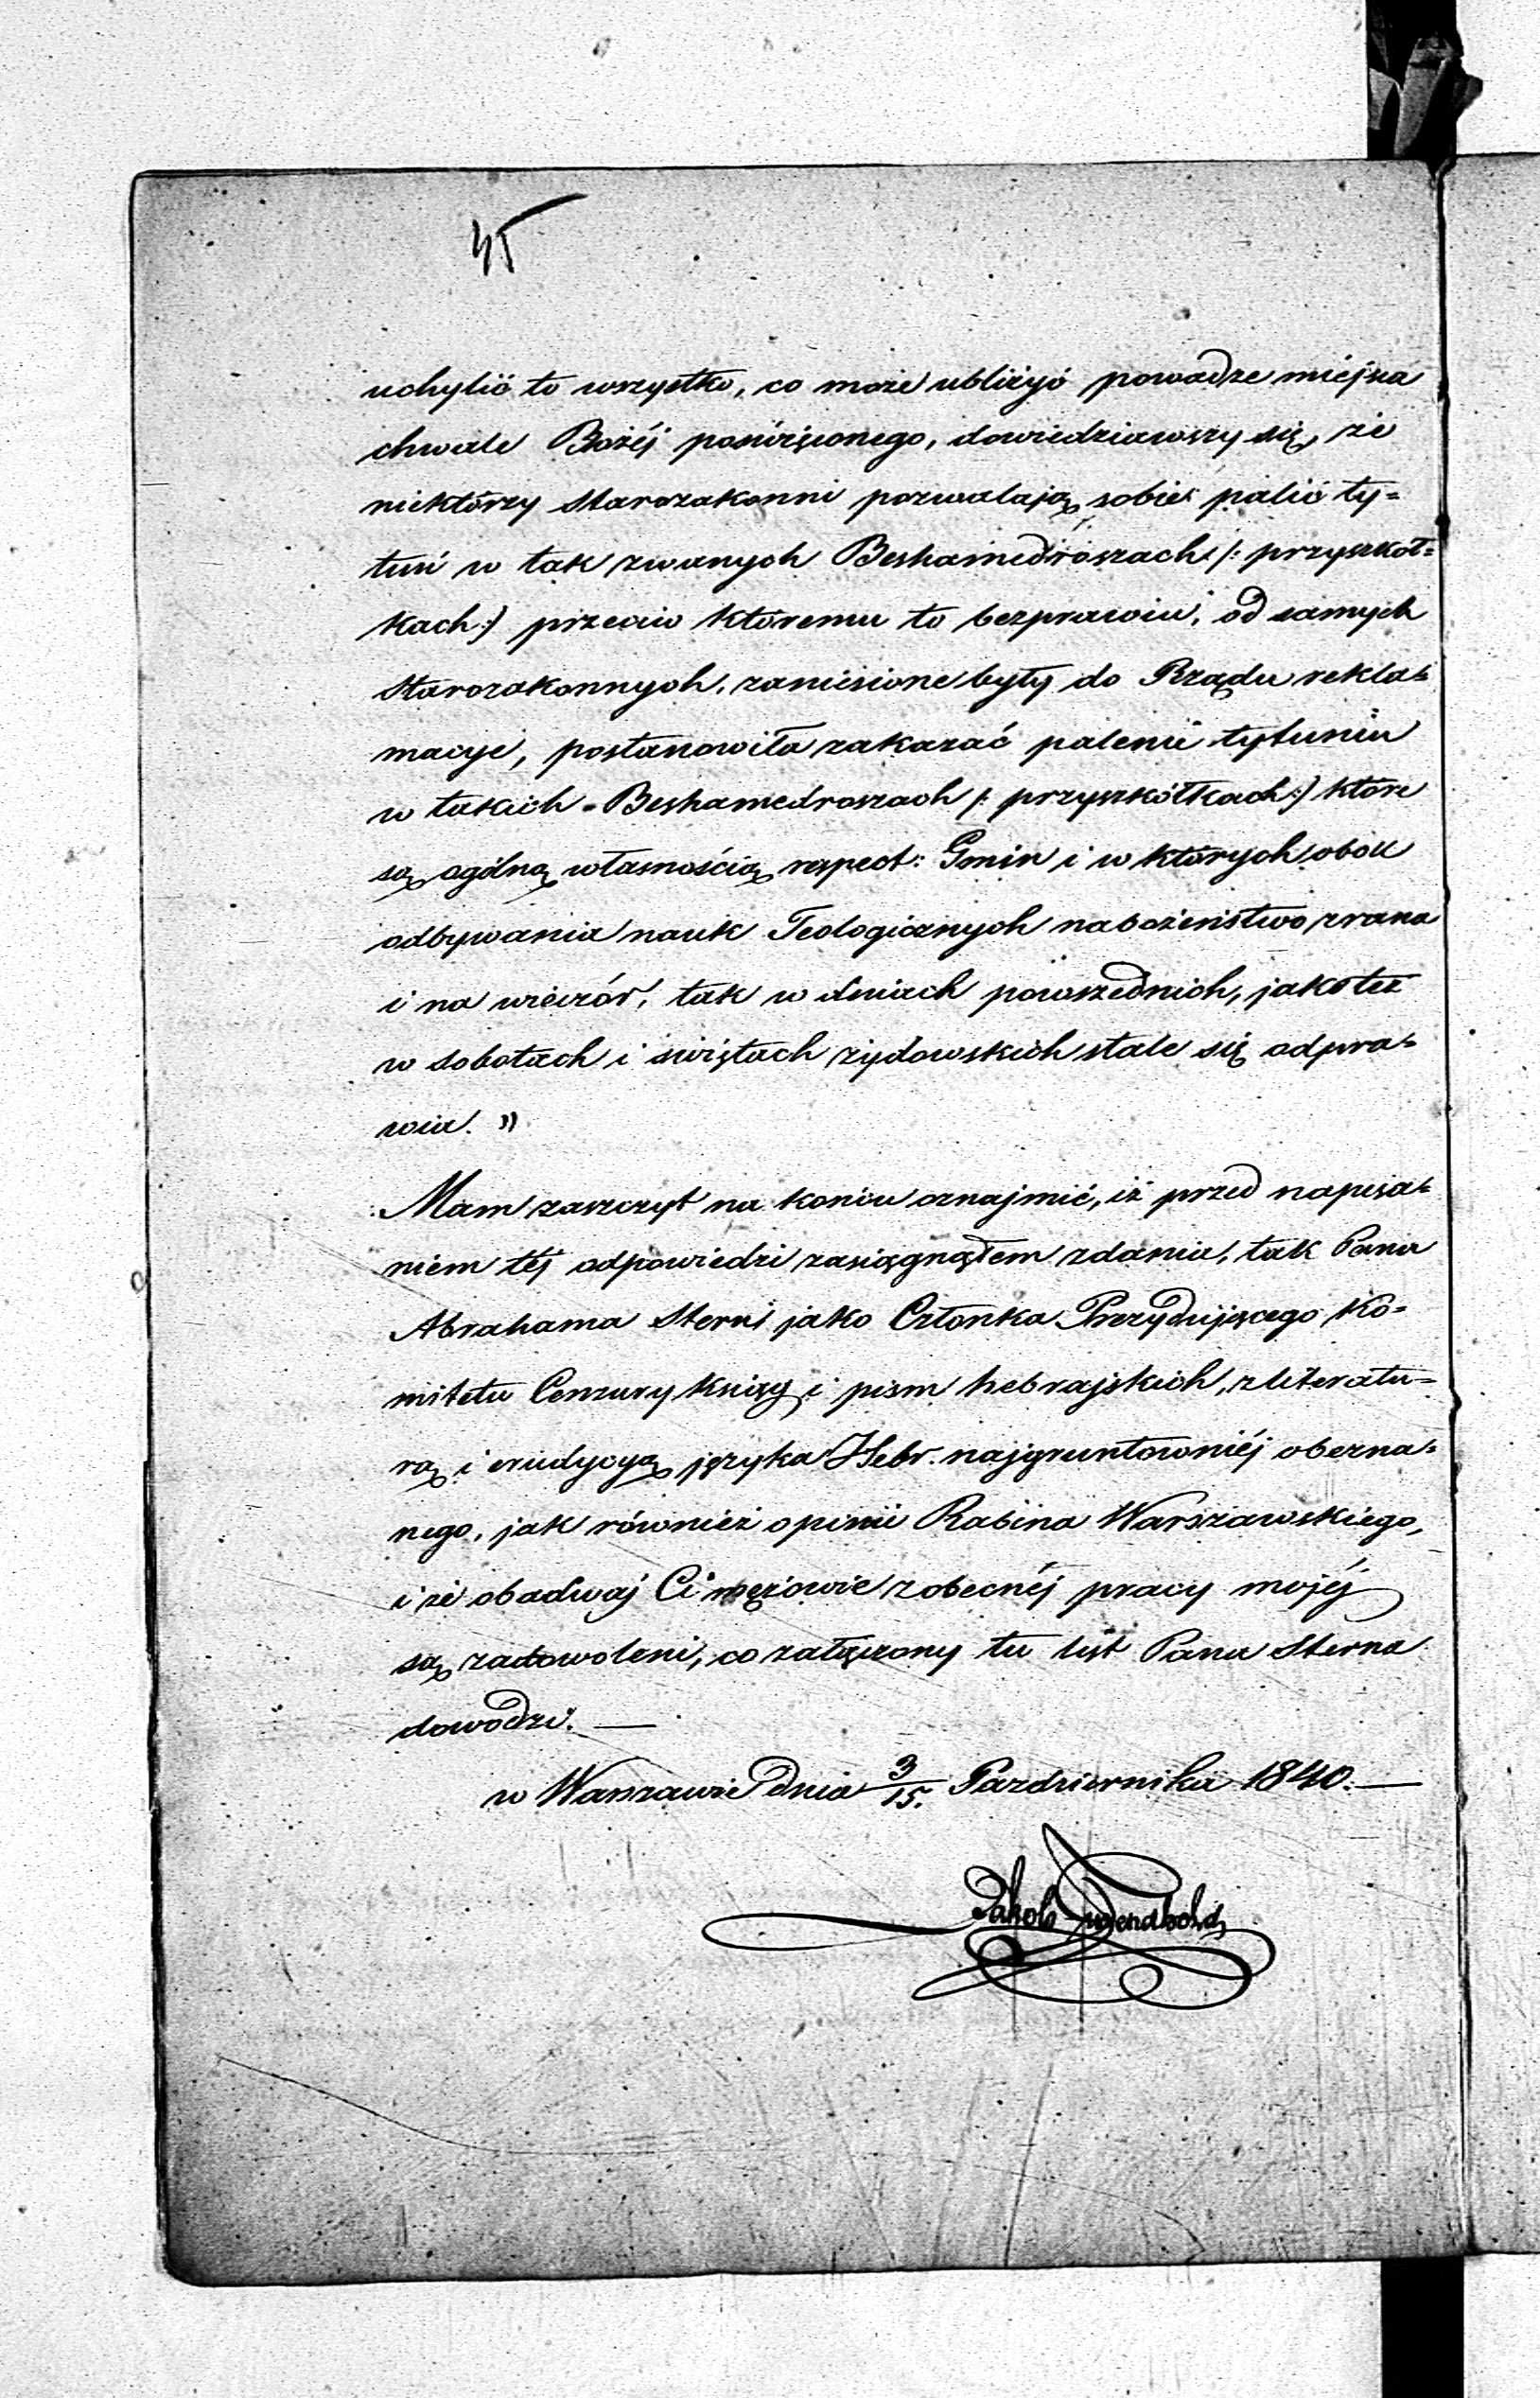 45
uchylić to wszystko, co może ubliżyć powadze miejsca
chwale Bożéj poświęconego, dowiedziawszy się, że
niektórzy Starozakonni pozwalają sobie palić ty=
tuń w tak zwanych Beshamedroszach /: przyszkoł=
kach :/ przeciw któremu to bezprawiu, od samych
Starozakonnych, zaniesione były do Rządu rekla=
macye, postanowiła zakazać palenie tytuniu
w takich Beshamedroszach /: przyszkółkach :/ które
są ogólną własnością respect: Gmin i w których obok
odbywania nauk Teologicznych nabożeństwo z rana
i na wieczór, tak w dniach powszednich, jakoteż
w sobotach i świętach żydowskich stale się odpra=
wia. "
Mam zaszczyt na końcu oznajmić, iż przed napisa=
niem téj odpowiedzi zasięgnąłem zdania, tak Pana
Abrahama Stern jako Członka Prezydującego Ko=
mitetu Cenzury Ksiąg i pism hebrajskich, z literatu=
rą i erudycyą języka Hebr. najgruntowniéj obezna=
nego, jak również opinii Rabina Warszawskiego,
i że obadwaj Ci mężowie z obecnéj pracy mojéj
są zadowoleni, co załączony tu list Pana Sterna
dowodzi. —
w Warszawie dnia 3/15. Pazdziernika 1840. —
Jakób Tugendhold